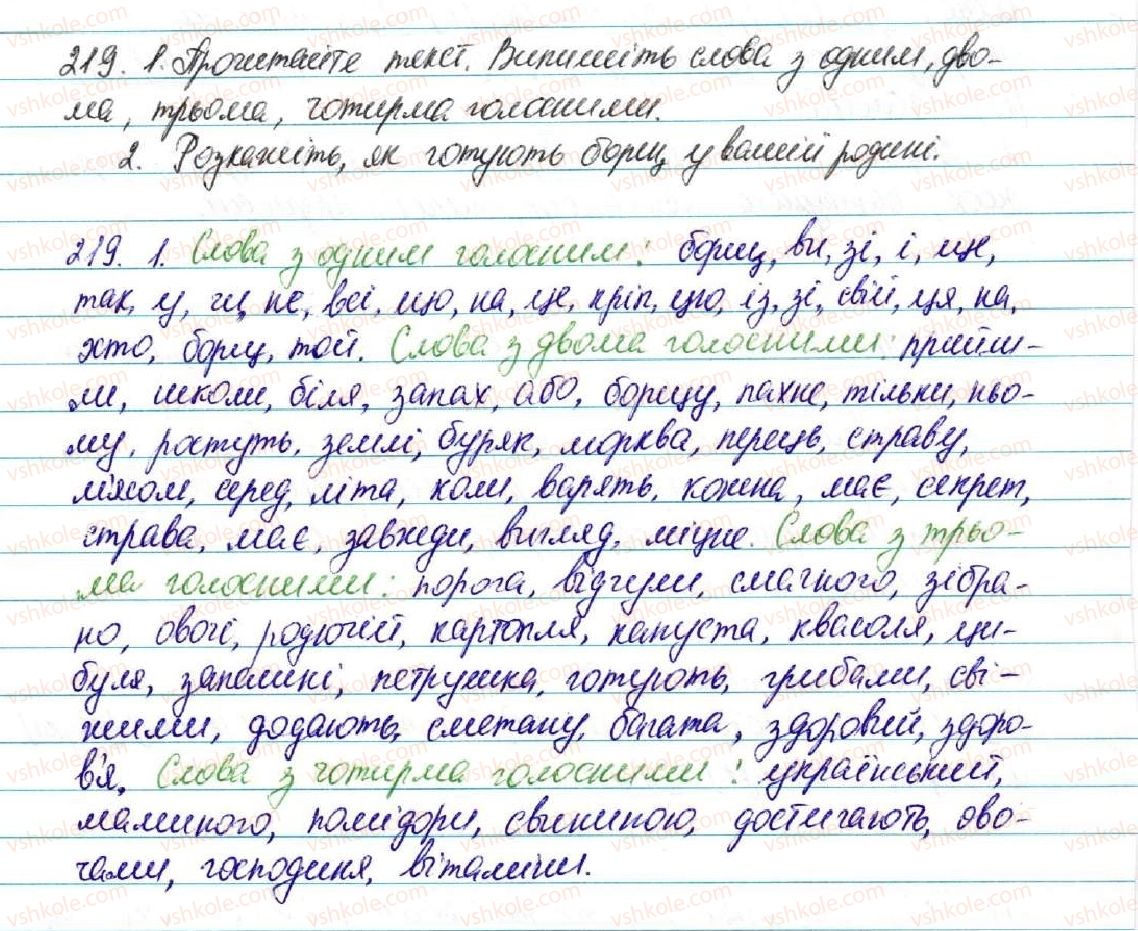 219. 1. Прочитайте текст. Випишіть слова з одним, дво-
ма, трьома, чотирма голосними.
2. Розкажіть, як готують борщ у вашій родині.
219. 1. Слова з одним голосним: борщ, ви, зі, і, ще,
так, у, чи, не, всі, що, на, це, кріп, цю, із, зі, свій, ця, на,
хто, борщ, той. Слова з двома голосними: прийш-
ли, школи, біля, запах, або, борщу, пахне, тільки, ньо-
му, ростуть, землі, буряк, морква, перець, страву,
м'ясом, серед, літа, коли, варять, кожна, має, секрет,
страва, має, завжди, вигляд, міцне. Слова з трьо-
ма голосними: порога, відчули, смачного, зібра-
но, овочі, родючій, картопля, капуста, квасоля, ци-
буля, запашні, петрушка, готують, грибами, сві-
жими, додають, сметану, багата, здоровий, здоро-
в'я. Слова з чотирма голосними: український,
маминого, помідори, свининою, достигають, ово-
чами, господиня, вітаміни.